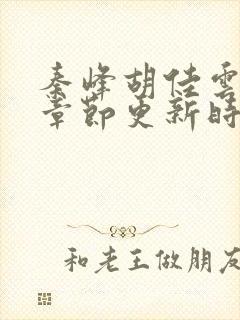 秦峰胡佳云
章节更新时
和老王做朋友